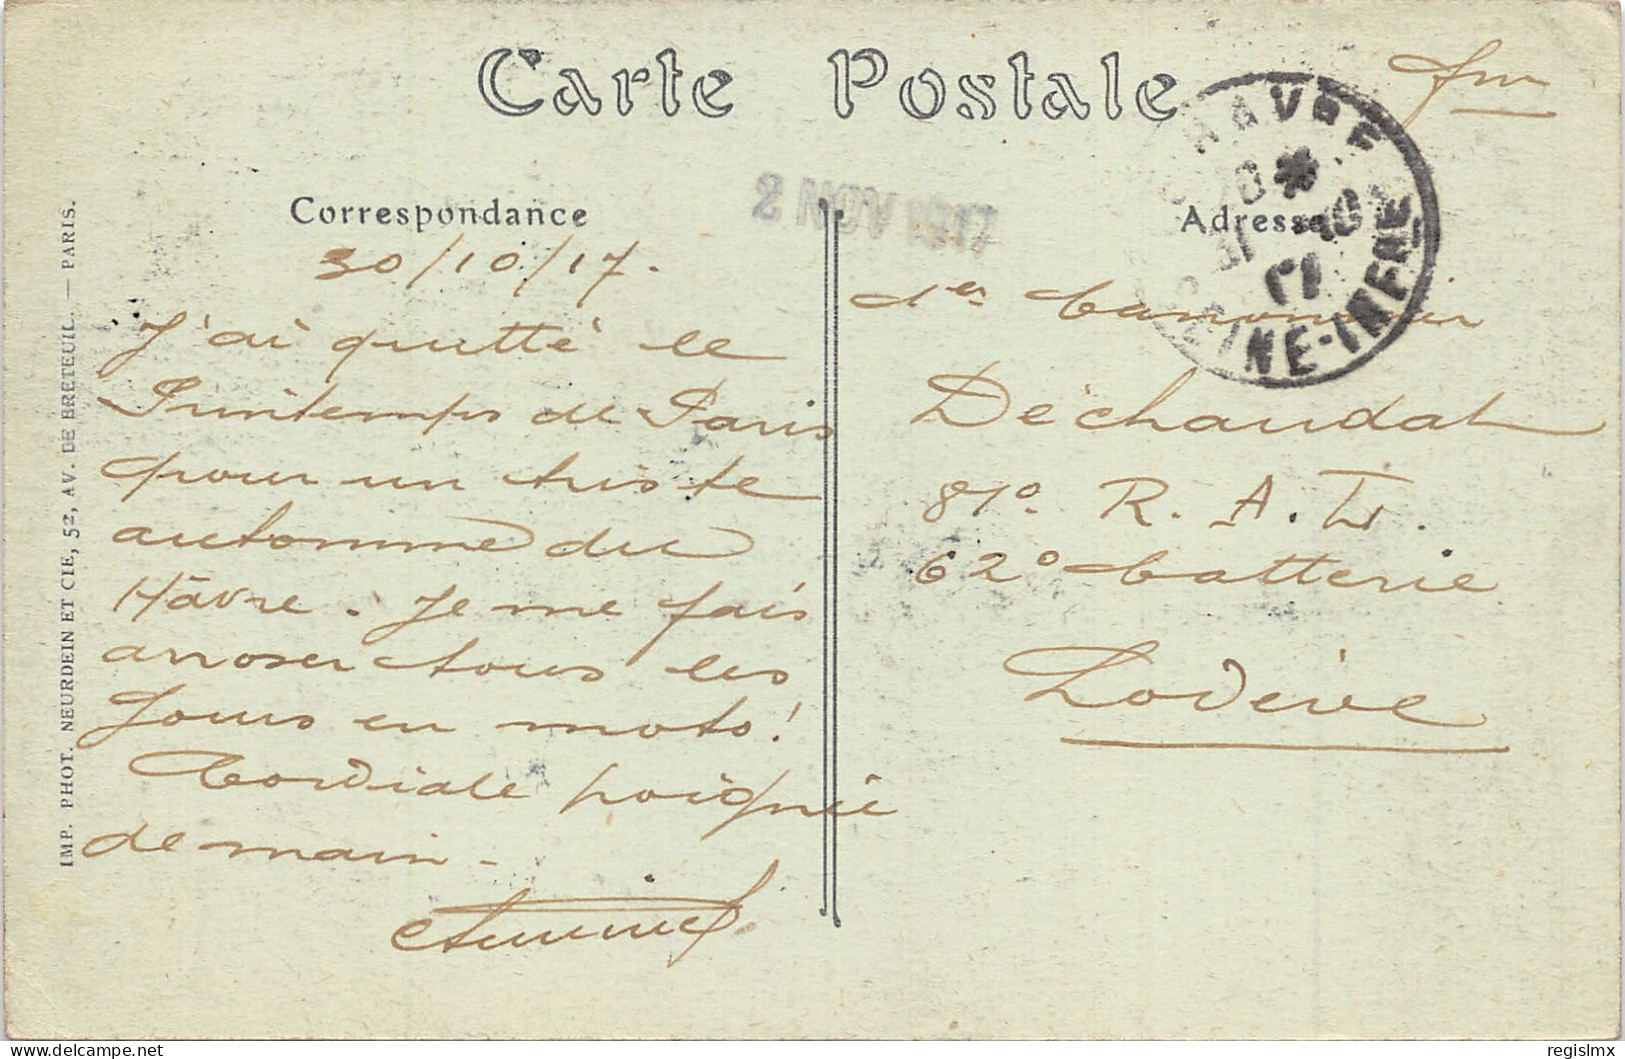 Carte Postale
fm
HAVRE
31 10
17
SEINE-INFRE
2 NOV 1917
Correspondance
30/10/17.
J'ai quitté le
Printemps de Paris
pour un triste
automne du
Hâvre. Je me fais
arroser tous les
jours en moto!
Cordiale poignée
de main -
Adresse
1er Canonnier
Déchaudat
81° R. A. L.
62° batterie
Lodève
IMP. PHOT. NEURDEIN ET CIE, 52, AV. DE BRETEUIL. — PARIS.
delcampe.net
regislmx